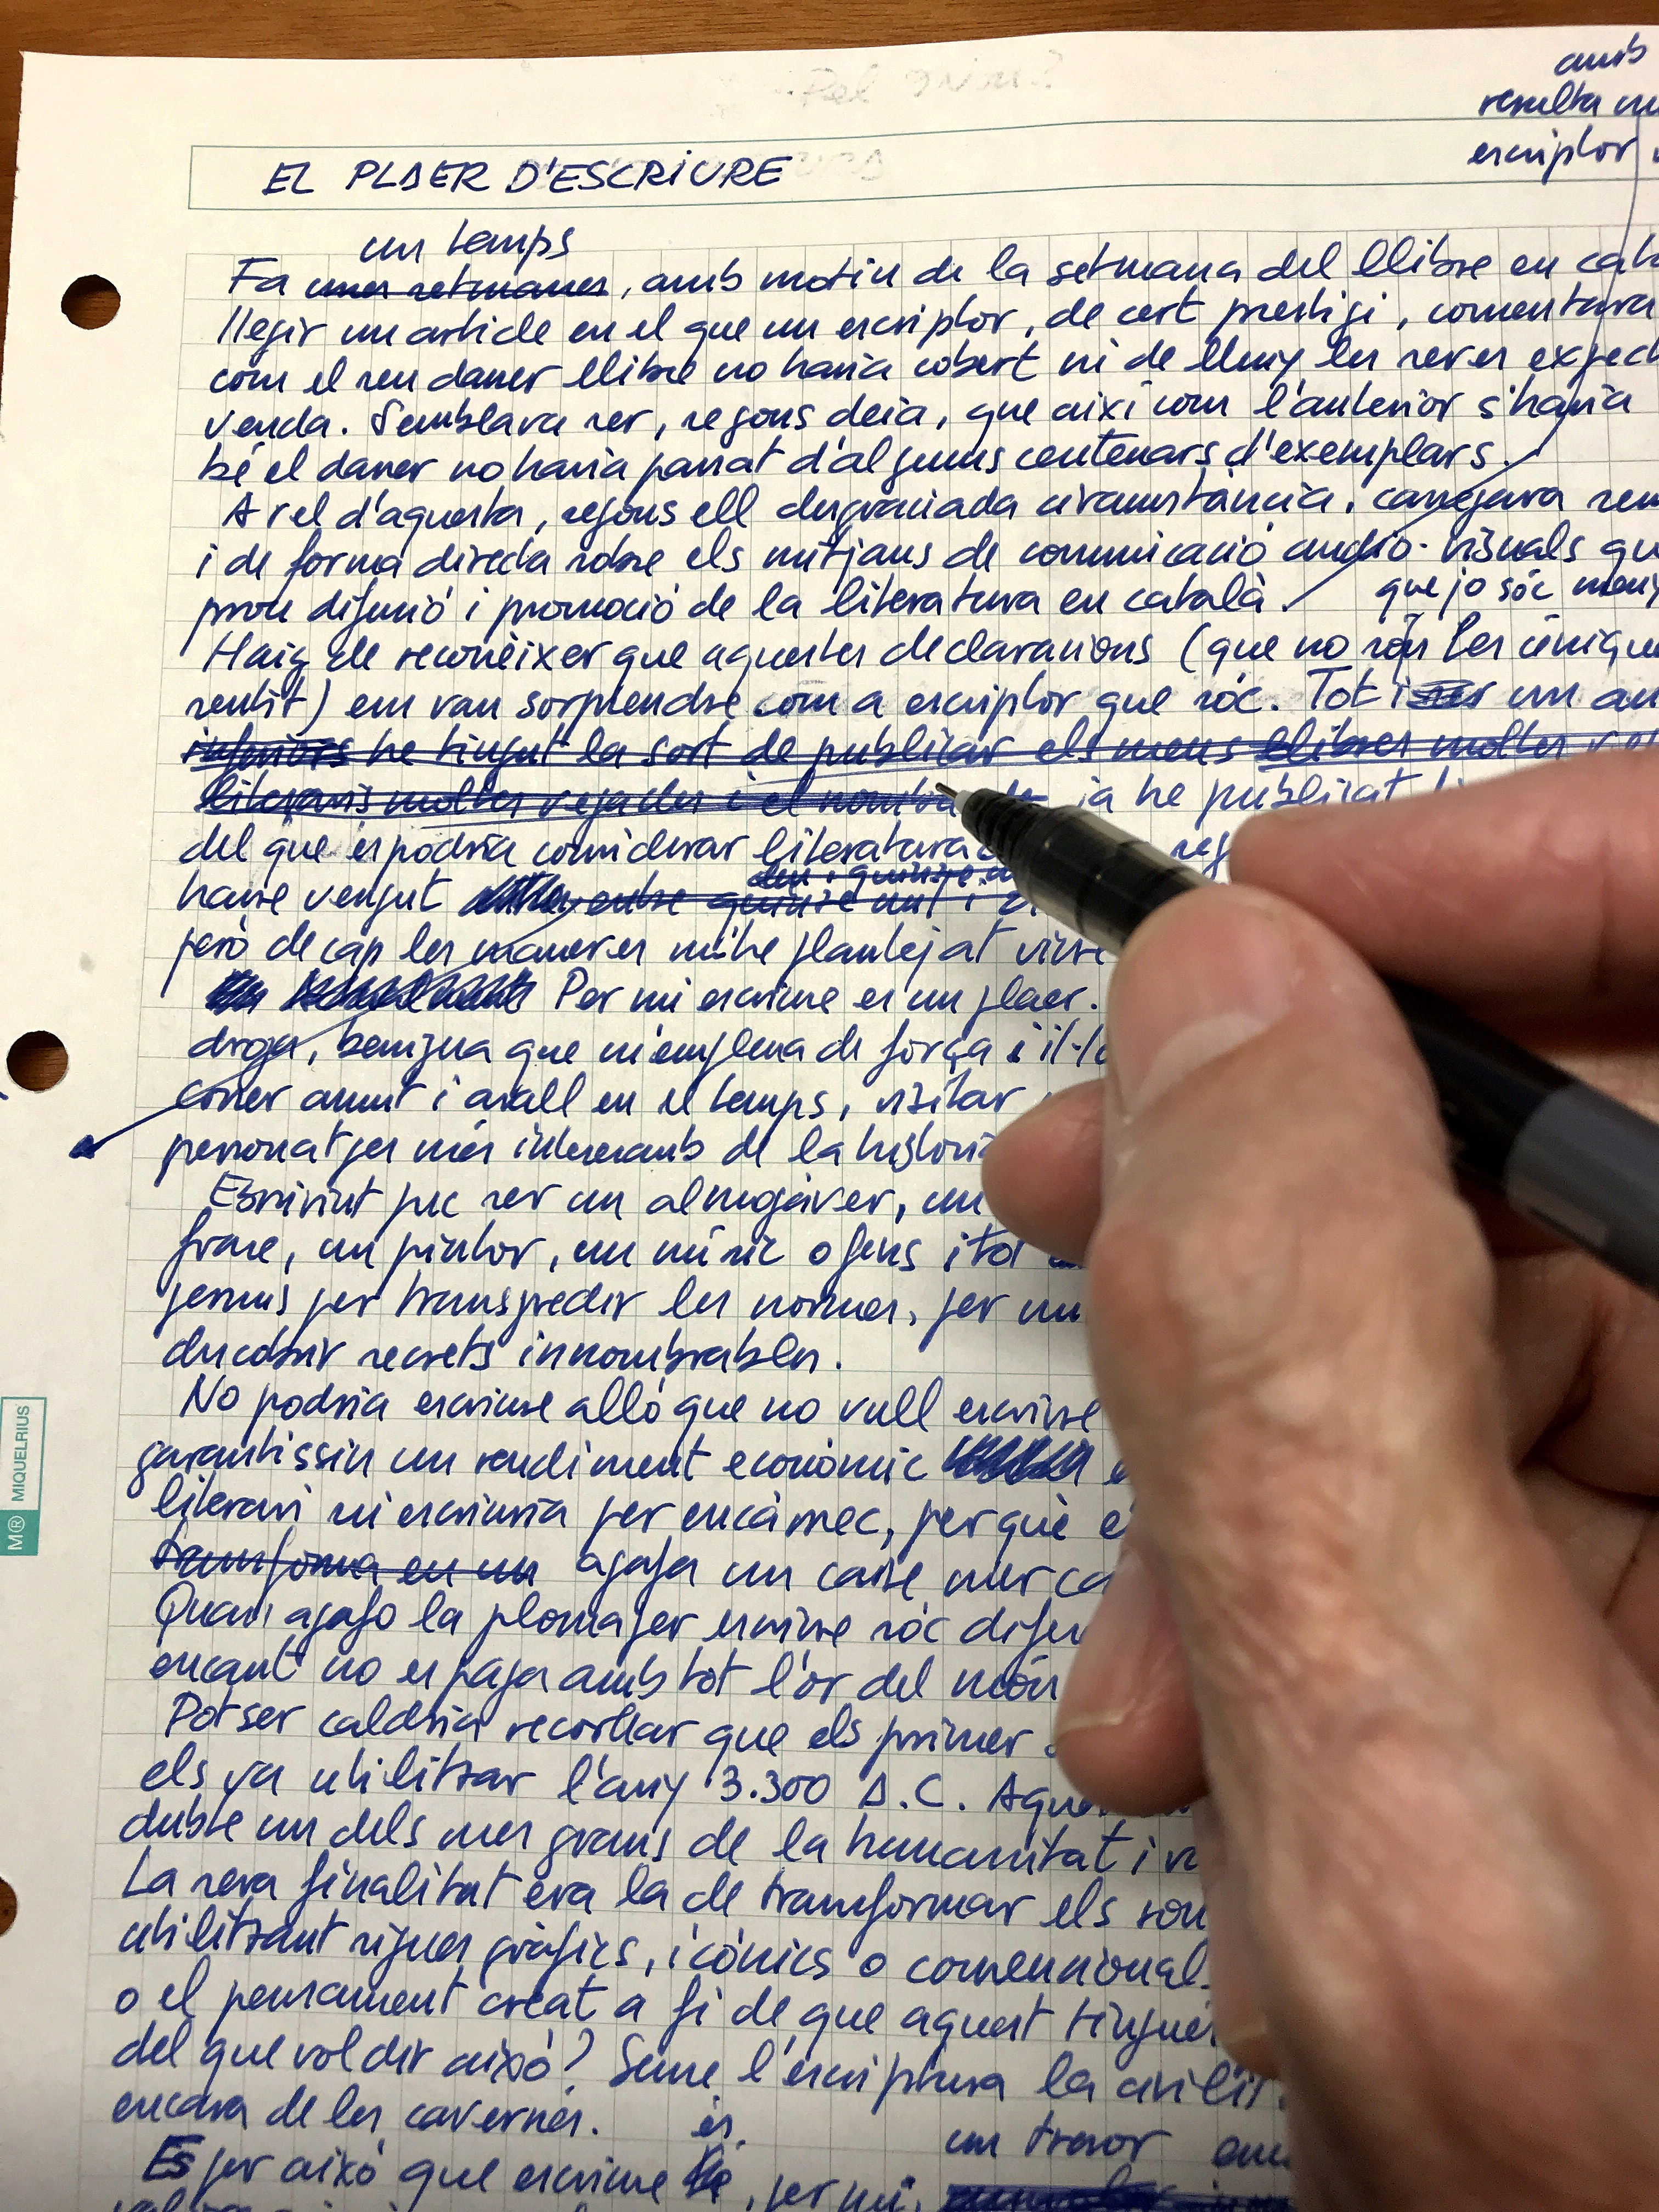 amb
resulta
escriptor
EL PLAER D'ESCRIURE
un temps
Fa unes setmanes, amb motiu de la setmana del llibre en cat
llegir un article en el que un escriptor, de cert prestigi, comentava
com el seu darrer llibre no havia cobert ni de lluny les seves expect
venda. Semblava ser, segons deia, que així com l'anterior s'havia
bé el darrer no havia passat d'alguns centenars d'exemplars.
A rel d'aquesta, segons ell desgraciada circumstància, carregava sen
i de forma directa sobre els mitjans de communicació audio-visuals qu
prou difusió i promoció de la literatura en català.
que jo sóc
Haig de reconèixer que aquestes declaracions (que no són les úniques
sentit) em van sorprendre com a escriptor que sóc. Tot i ser un au
inferiors he tingut la sort de publicar els meus llibres moltes
literaris moltes vegades i el nombre de ja he publicat
del que es podria considerar literatura
havre vengut entre quinze mil i
però de cap les maneres m'he plantejat viure
Per mi escriure es un plaer.
droga, benigna que m'emplena de força i il·l
córrer amunt i avall en el temps, visitar
personatges més interesants de la història
Escrivint puc ser un almogàver, un
frare, un pintor, un músic o fins i tot
permís per transgredir les normes, per
descobrir secrets innombrables.
No podria escriure allò que no vull escriure
garantissin un rendiment econòmic
literari ni escriuria per encàrrec, perquè
transforma en un agafa un caire merca
Quan agafo la ploma per escriure sóc
encant no es paga amb tot l'or del món
Potser caldria recordar que els primer
els va utilitzar l'any 3.300 A.C. Aque
dubte un dels mes grans de la humanitat i
La seva finalitat era la de transformar els son
utilitzant signes gràfics, icònics o convencional
o el pensament creat a fi de que aquest tingués
del que vol dir això? Sense l'escriptura la civilit
encara de les cavernes.
és
un tresor
Es per això que escriure, per mi,
M® MIQUELRIUS